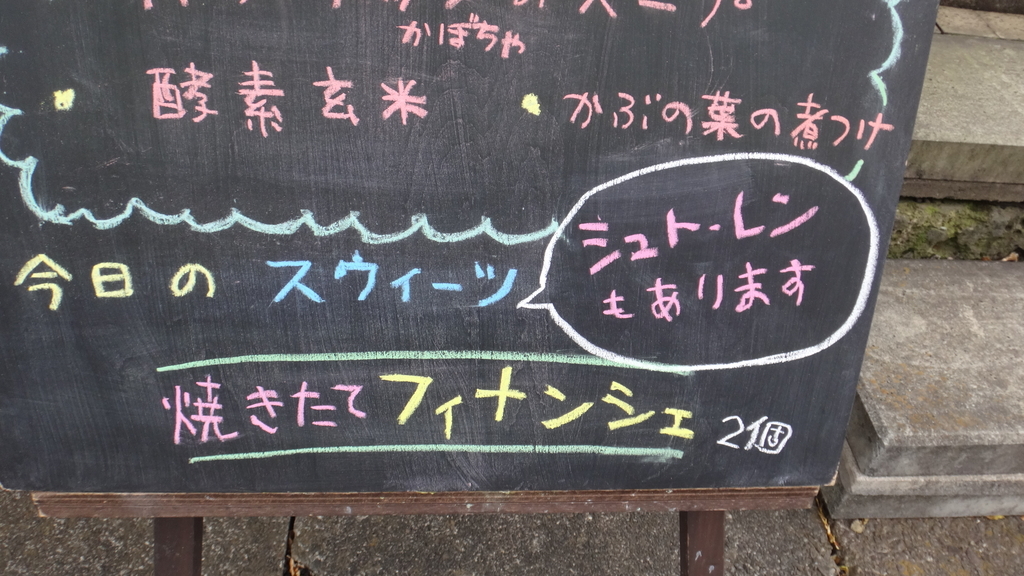 スープ
かぼちゃ
・酵素玄米 ・かぶの葉の煮つけ
今日のスウィーツ
シュトーレン
もあります
焼きたてフィナンシェ 2個